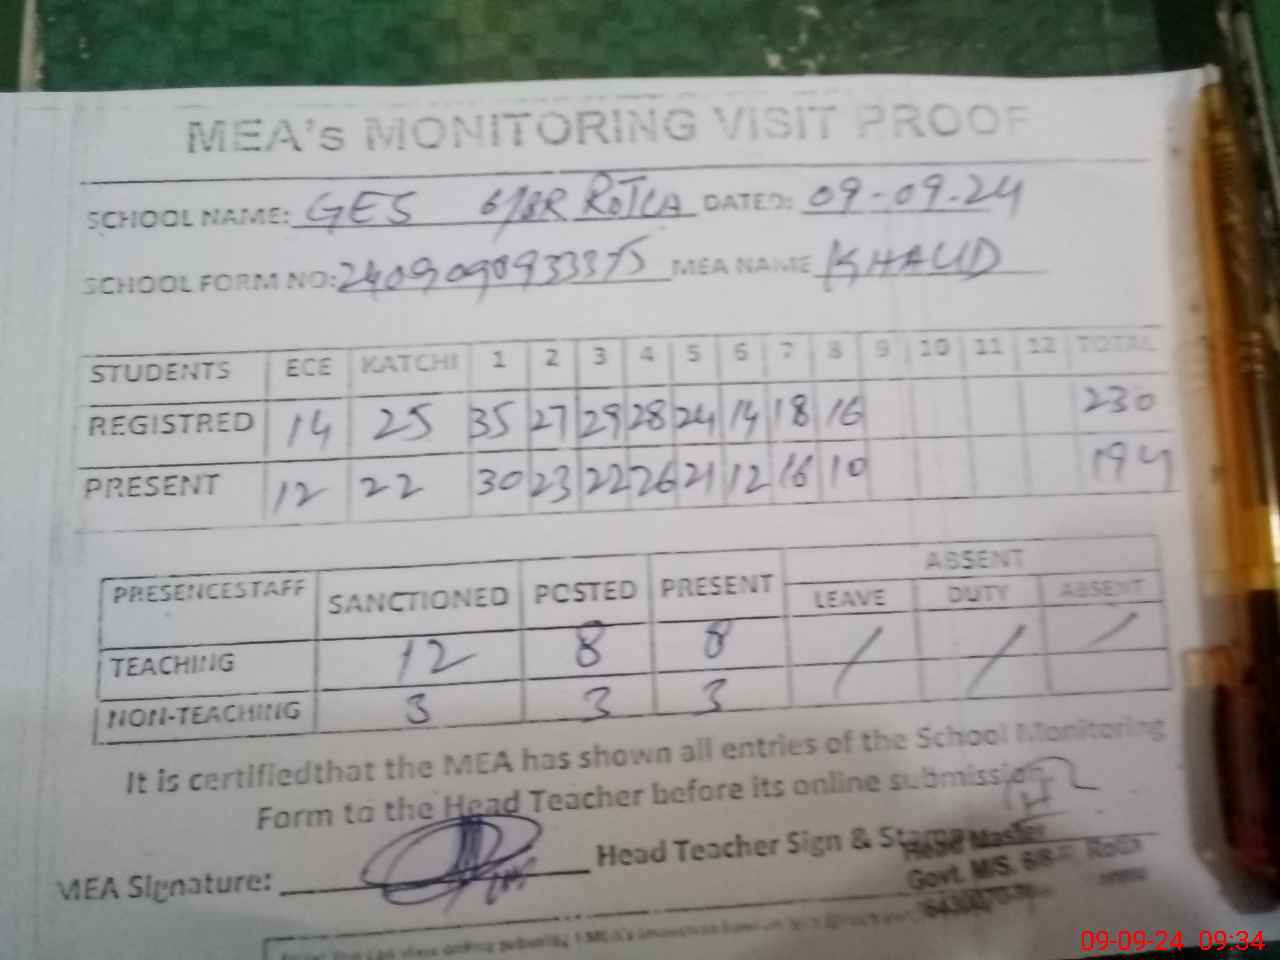 MEA's MONITORING VISIT PROOF
SCHOOL NAME: GES 6/8R ROTLA DATED: 09-09-24
SCHOOL FORM NO: 240909093335 MEA NAME KHALID
STUDENTS ECE KATCHI 1 2 3 4 5 6 7 8 9 10 11 12 TOTAL
REGISTRED 14 25 35 27 29 28 24 14 18 16 230
PRESENT 12 22 30 23 22 26 21 12 16 10 194
ABSENT
PRESENCESTAFF SANCTIONED POSTED PRESENT LEAVE DUTY ABSENT
TEACHING 12 8 8 / / /
NON-TEACHING 3 3 3
It is certifiedthat the MEA has shown all entries of the School Monitoring
Form to the Head Teacher before its online submission
MEA Signature: Head Teacher Sign & Stamp
Head Master
Govt. M/S.
09-09-24 09:34